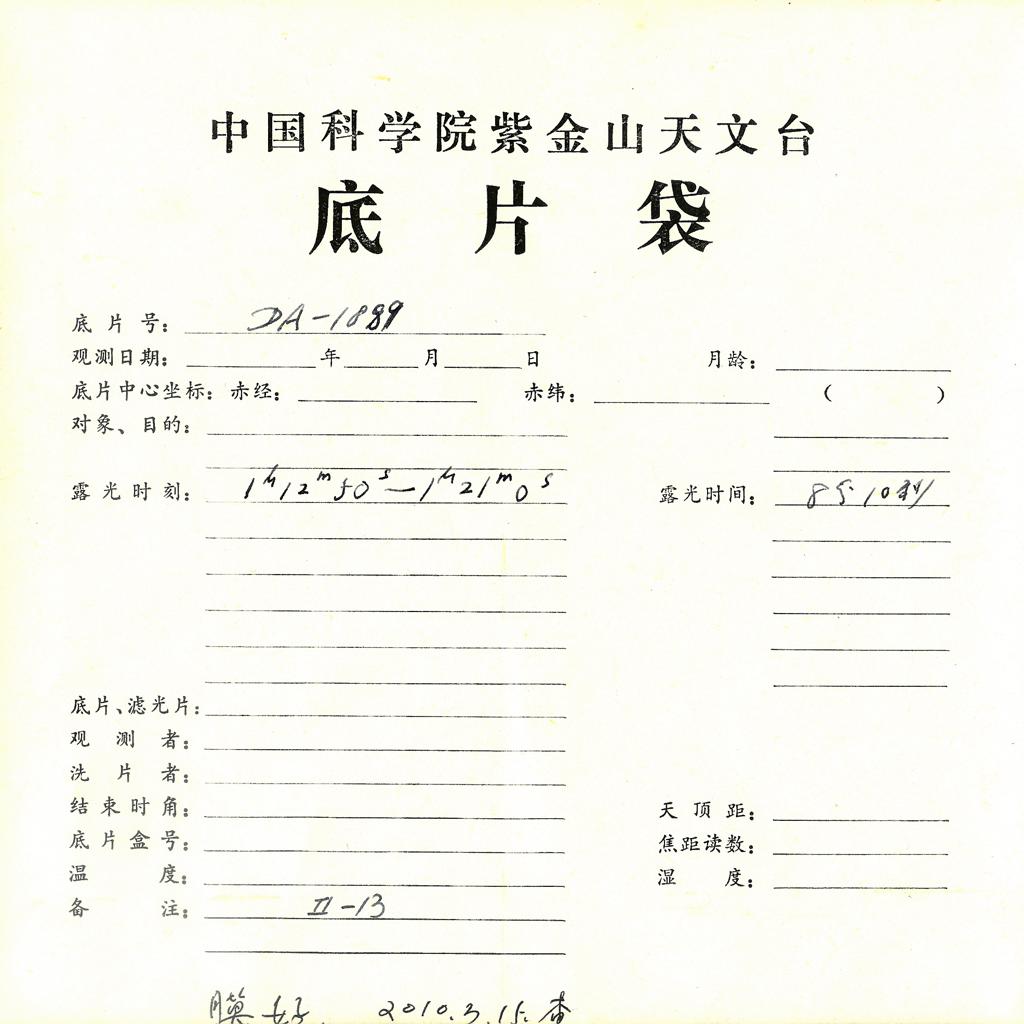 中国科学院紫金山天文台
底片袋
底片号： DA-1889
观测日期： 年 月 日 月龄：
底片中心坐标：赤经： 赤纬： （ ）
对象、目的：
露光时刻： 1h12m50s—1h21m0s 露光时间： 8分10秒
底片、滤光片：
观测者：
洗片者：
结束时角： 天顶距：
底片盒号： 焦距读数：
温度： 湿度：
备注： II-13
膜好. 2010.3.15.查